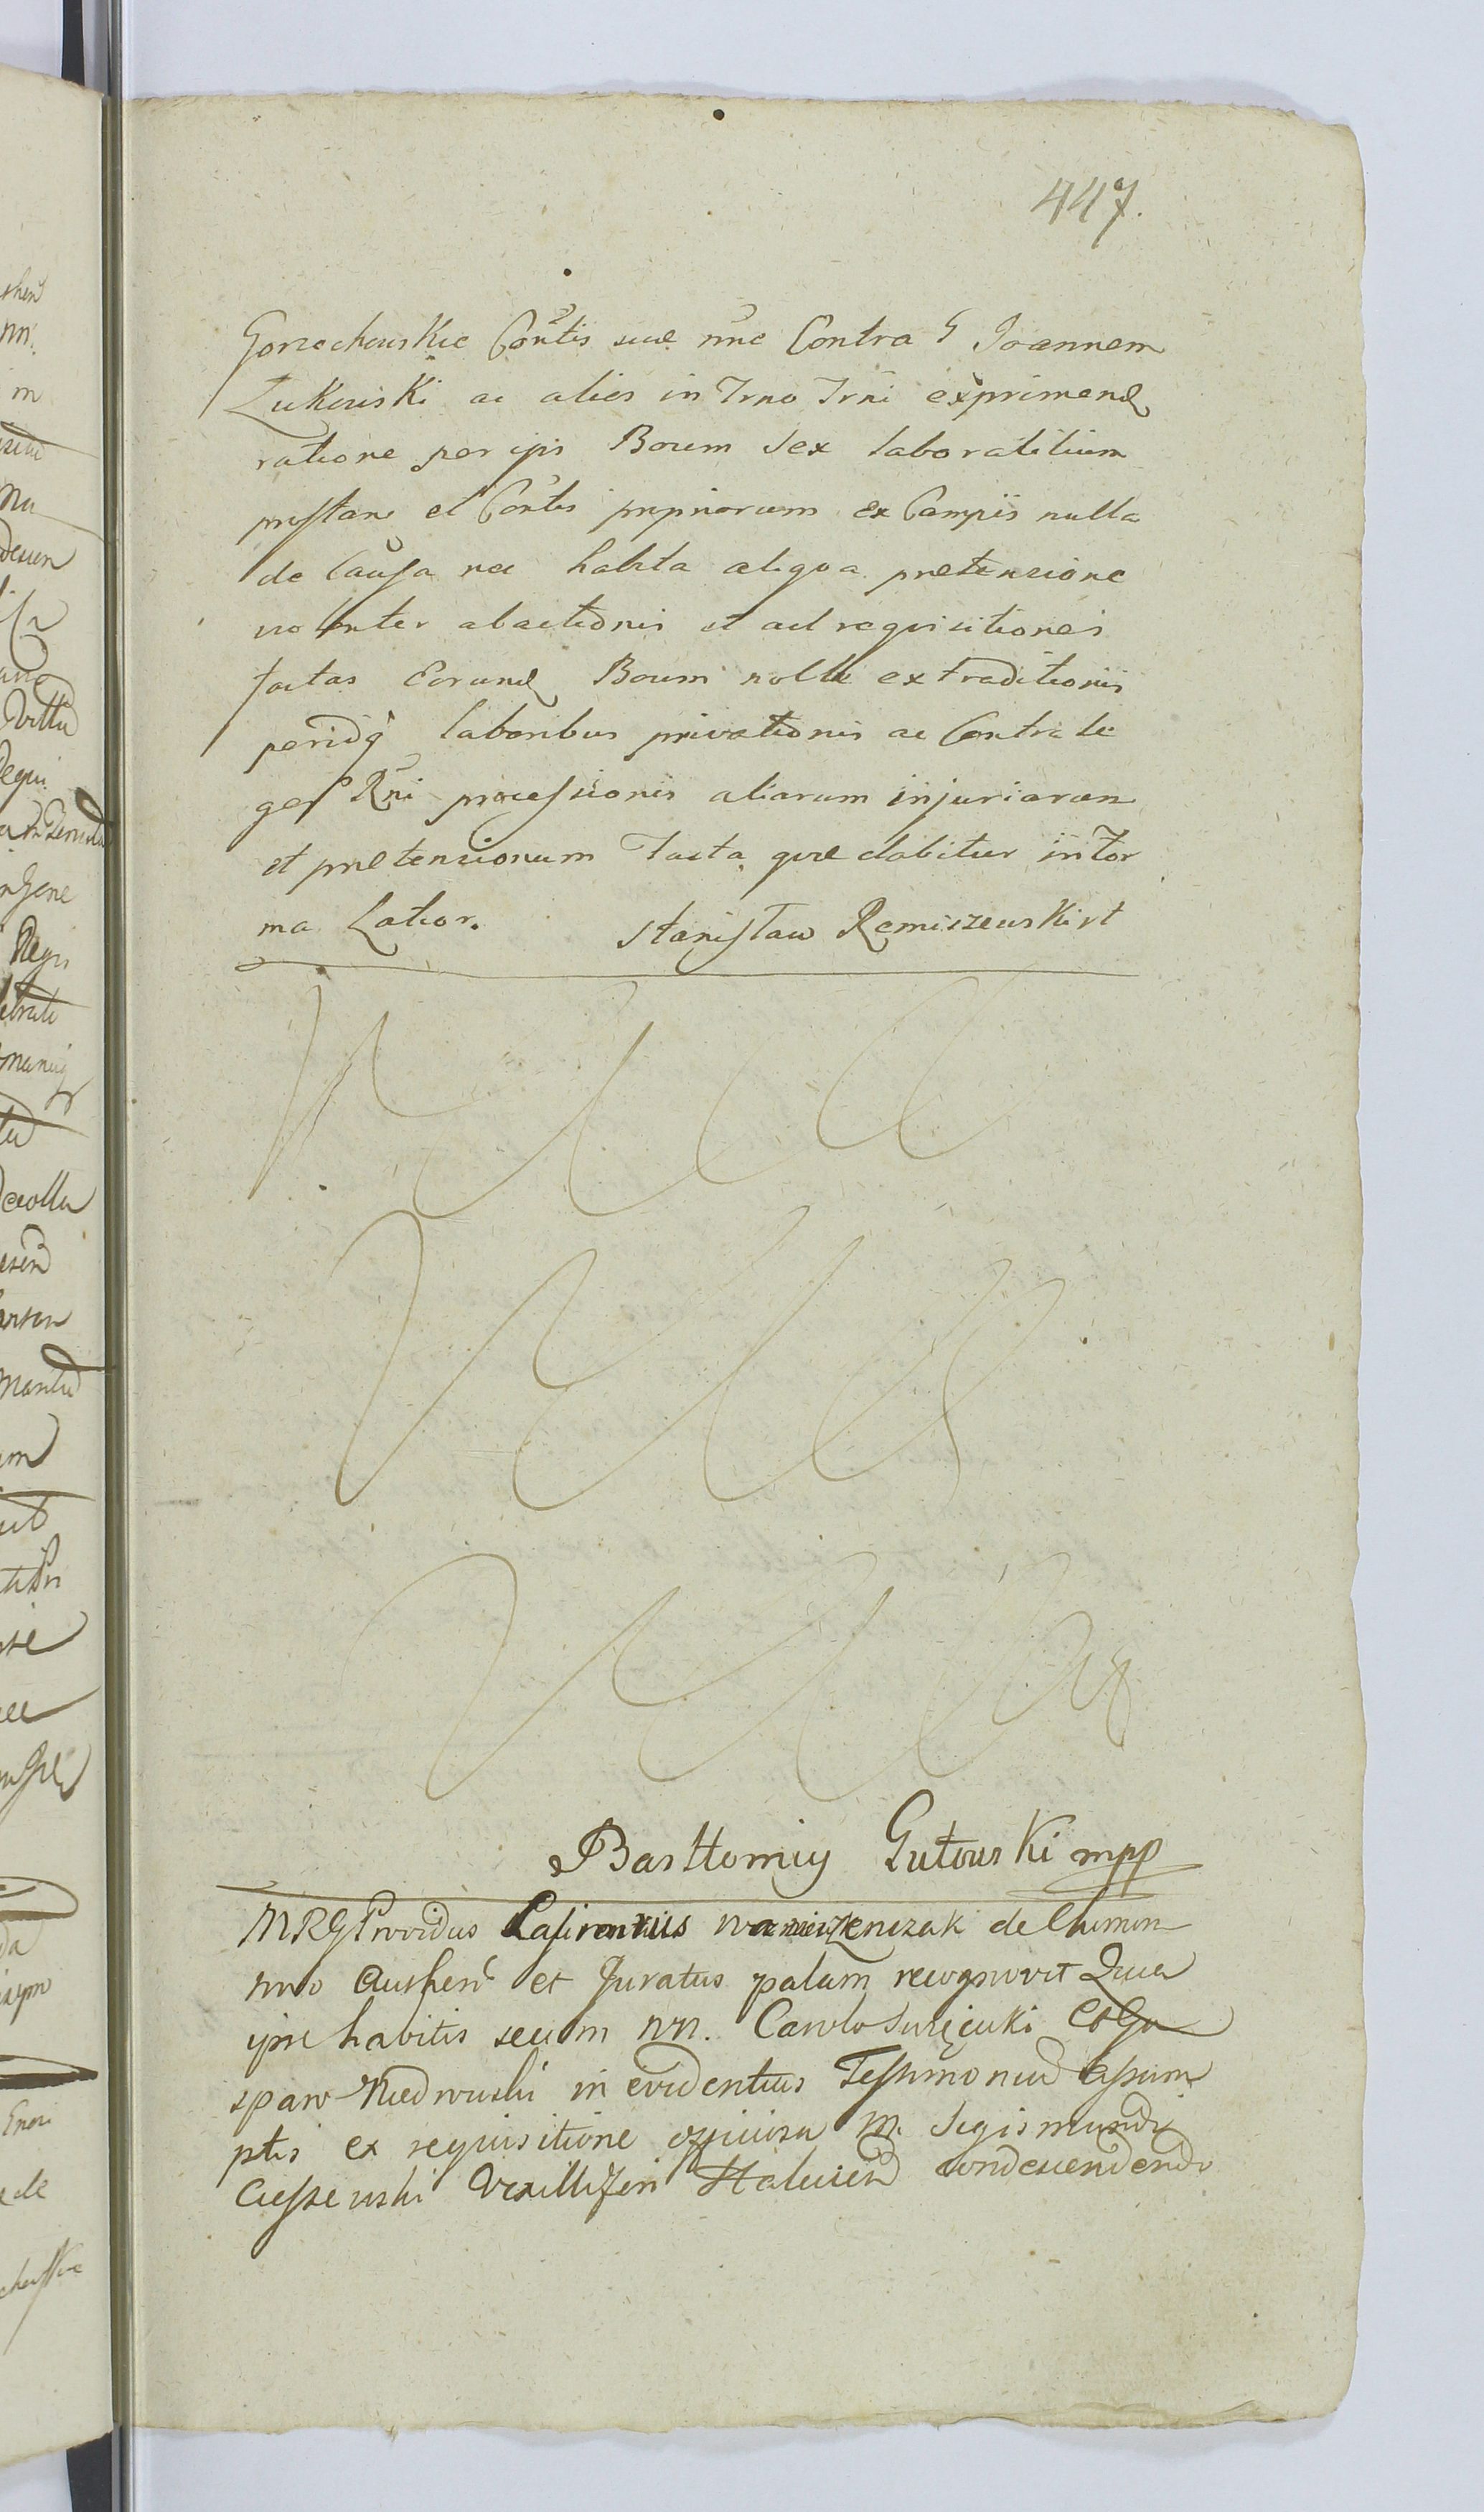 447.
Gorzechowskie Contis suae nnc Contra G Joannem
Łukowski ac alios in Trno Trni exprimend
ratione per ipss Boum Sex laboratitium
prestan et Contis propriorum ex Campis nulla
de Causa nec habita aliqva pretensione
violenter abactionis et ad reqvisitiones
factas Eorund Boum nolle extraditionis
peridq laboribus privationis ac Contra le
ges Rni processionis aliarum injuriarum
et pretensionum Facta qvae dabitur in for
ma Latior. Stanisław Remiszewski vt
Bartłomiy Gutowski mpp
MRG Providus Laurentius de Chumin
nno Authen et Juratus palam recognovit Quia
ipse habitis secum nn. Carolo Suręcuki et Ga
sparo Niedwuski in evidentius Testimoniu assum
ptis ex requisitione officiosa M. Sigismundi
Ciessewski Vexilliferi Halicien condescendendo